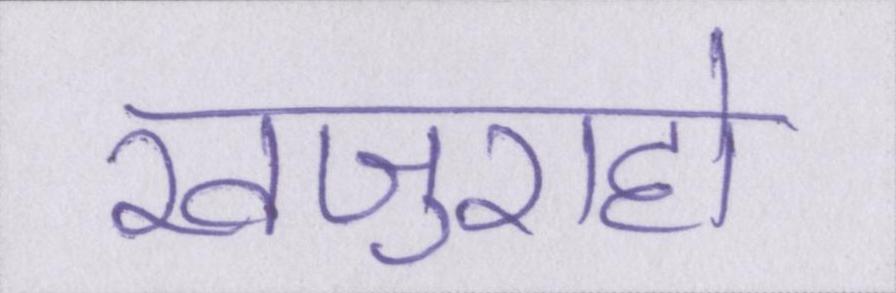 खजुराहो